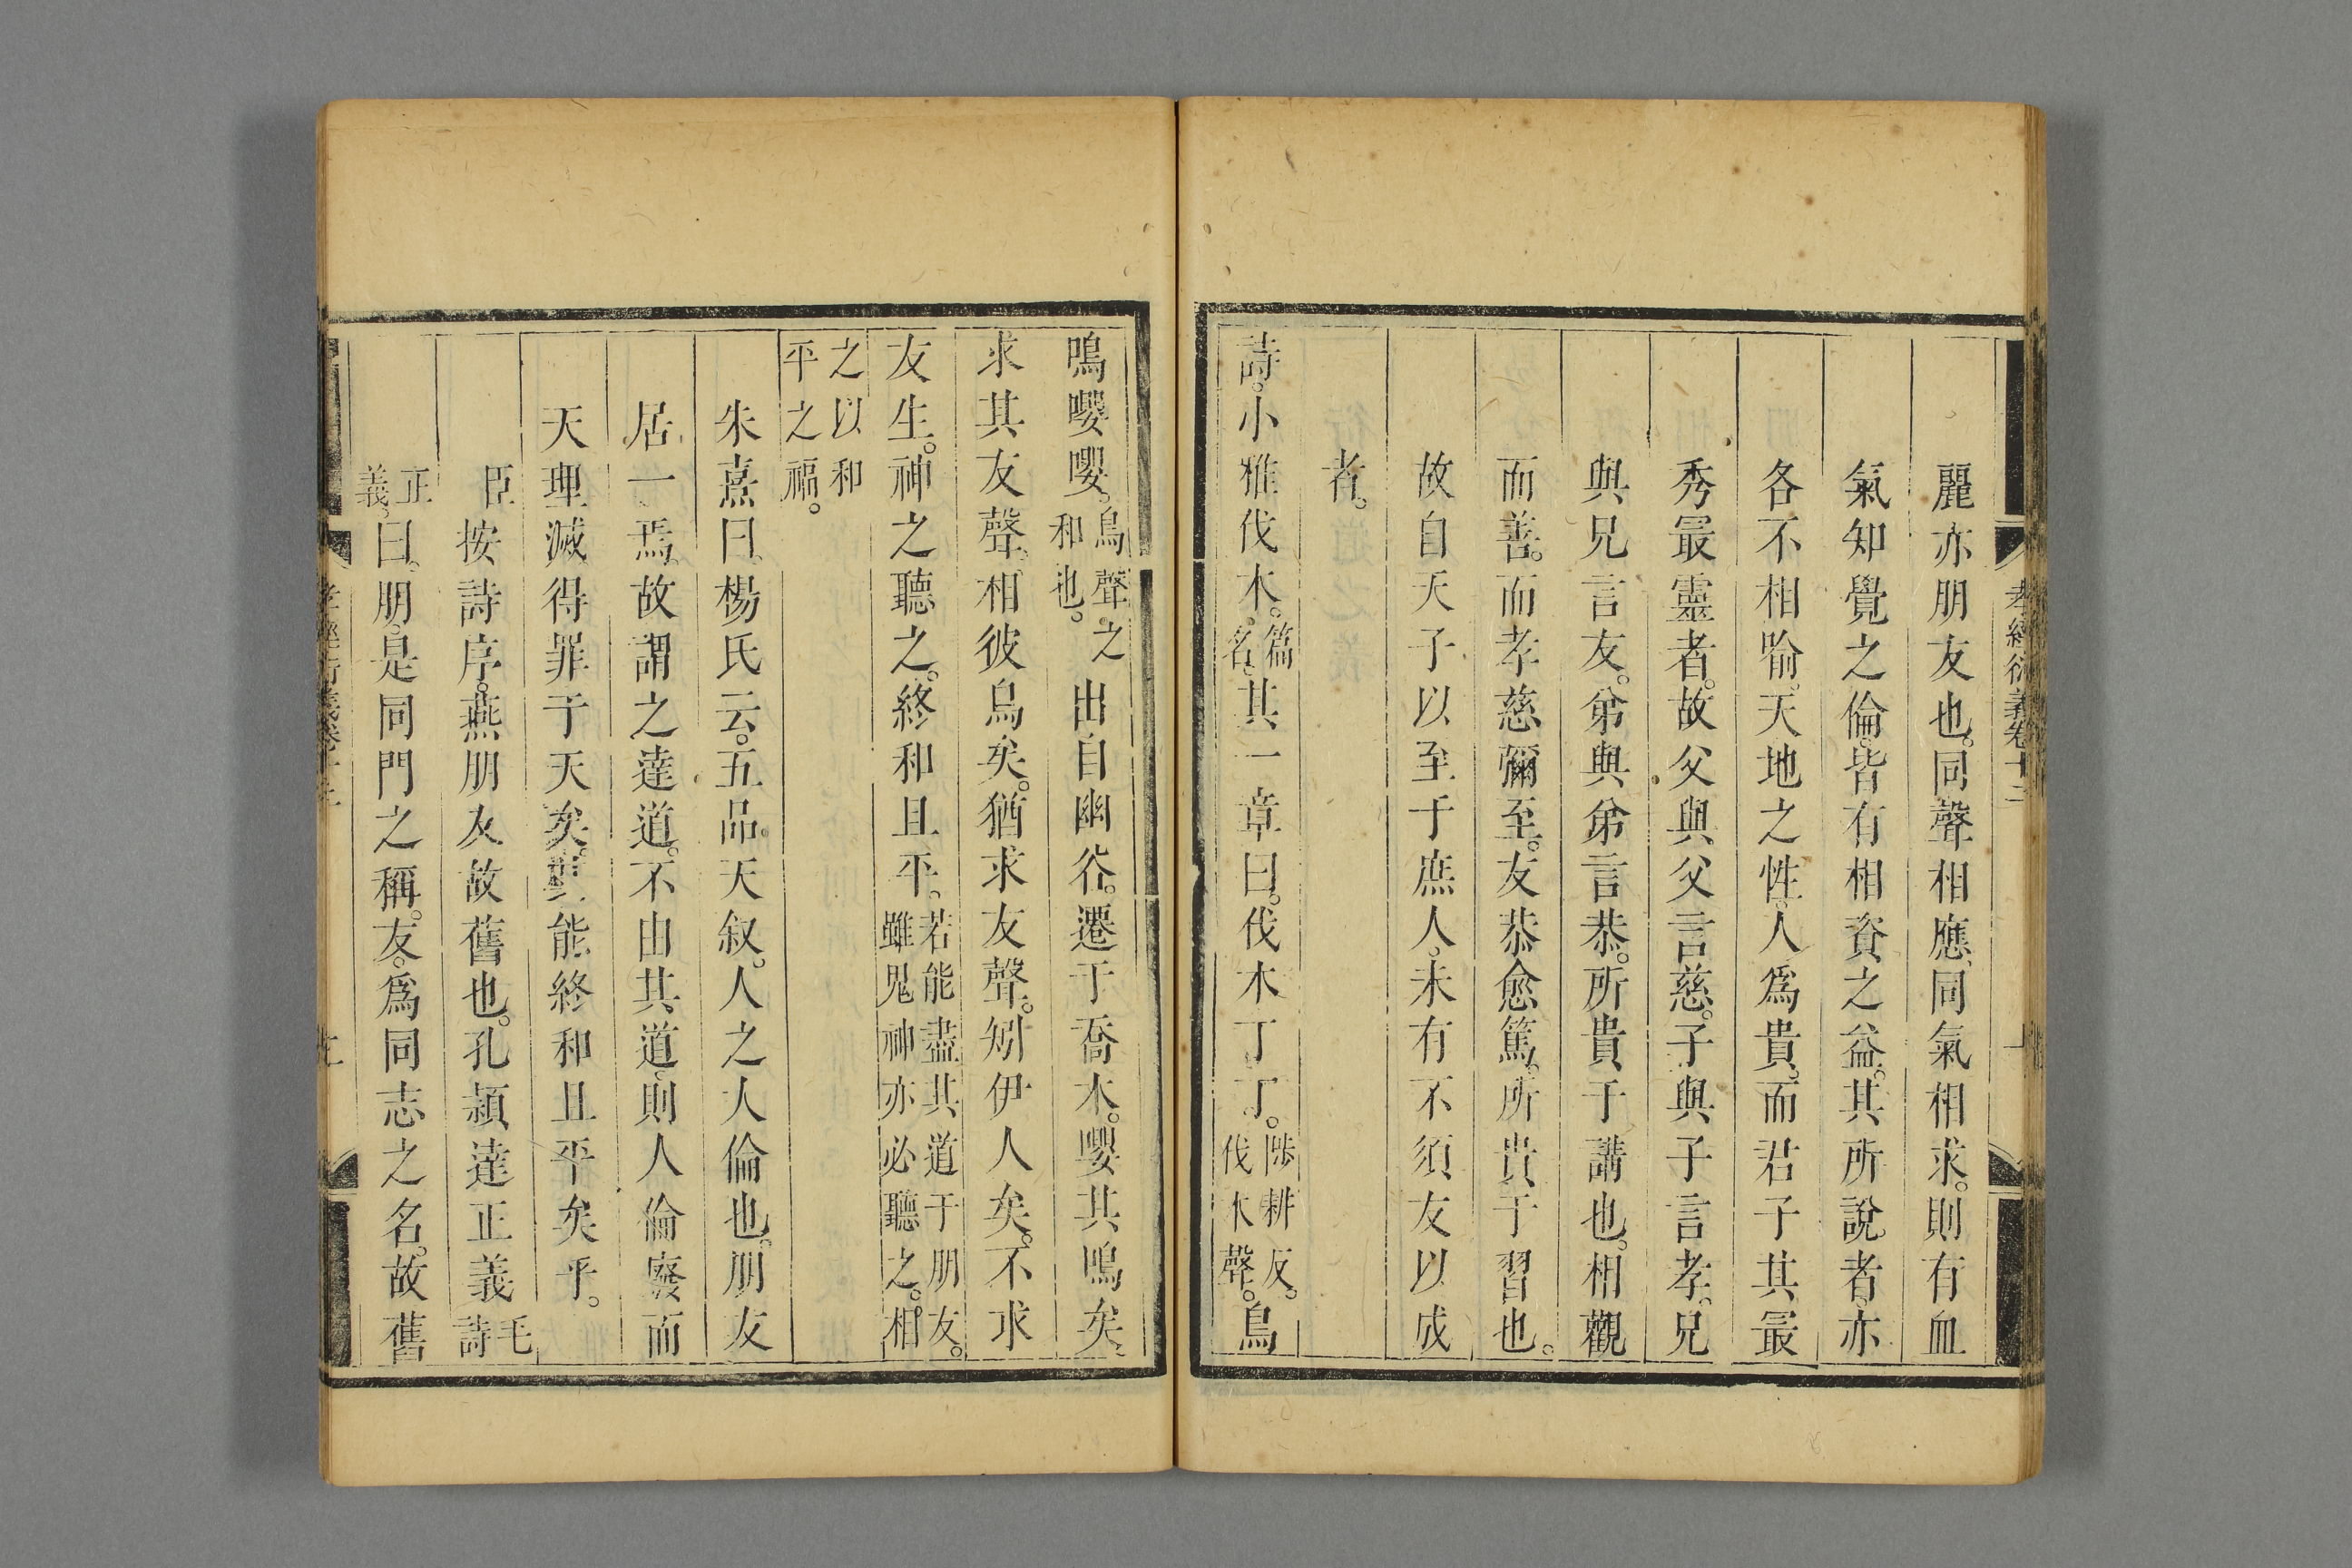 麗亦朋友也。同聲相應、同氣相求。則有血
氣知覺之倫。皆有相資之益。其所說者。亦
各不相喻。天地之性。人爲貴。而君子其最
秀最靈者。故父與父言慈。子與子言孝。兄
與兄言友。弟與弟言恭。所貴于講也。相觀
而善。而孝慈彌至。友恭愈篤。所貴于習也。
故自天子以至于庶人。未有不須友以成
者。
詩。小雅伐木。篇名。其一章曰。伐木丁丁。陟耕反。伐木聲。鳥
鳴嚶嚶。鳥聲之和也。出自幽谷。遷于喬木。嚶其鳴矣。
求其友聲。相彼鳥矣。猶求友聲。矧伊人矣。不求
友生。神之聽之。終和且平。若能盡其道于朋友。雖鬼神亦必聽之。相
之以和平之福。
朱熹曰。楊氏云。五品天叙。人之大倫也。朋友
居一焉。故謂之達道。不由其道。則人倫廢而
天理滅得罪于天矣。能終和且平矣乎。
臣按詩序。燕朋友故舊也。孔穎達正義毛詩
正義。曰。朋。是同門之稱。友。爲同志之名。故舊
孝經衍義卷十二